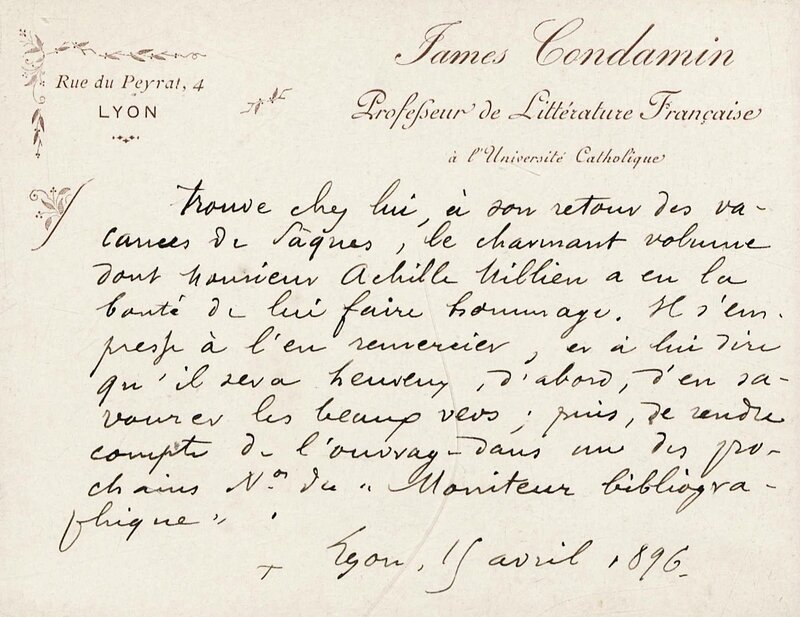 James Condamin
Professeur de Littérature Française
à l'Université Catholique
Rue du Peyrat, 4
LYON
trouve chez lui, à son retour des va-
cances de Pâques, le charmant volume
dont Monsieur Achille Millien a eu la
bonté de lui faire hommage. Il s'em-
presse à l'en remercier, et à lui dire
qu'il sera heureux, d'abord, d'en sa-
vourer les beaux vers ; puis, de rendre
compte de l'ouvrage dans un des pro-
chains Nos du "Moniteur bibliogra-
phique".
Lyon, 15 avril 1896.